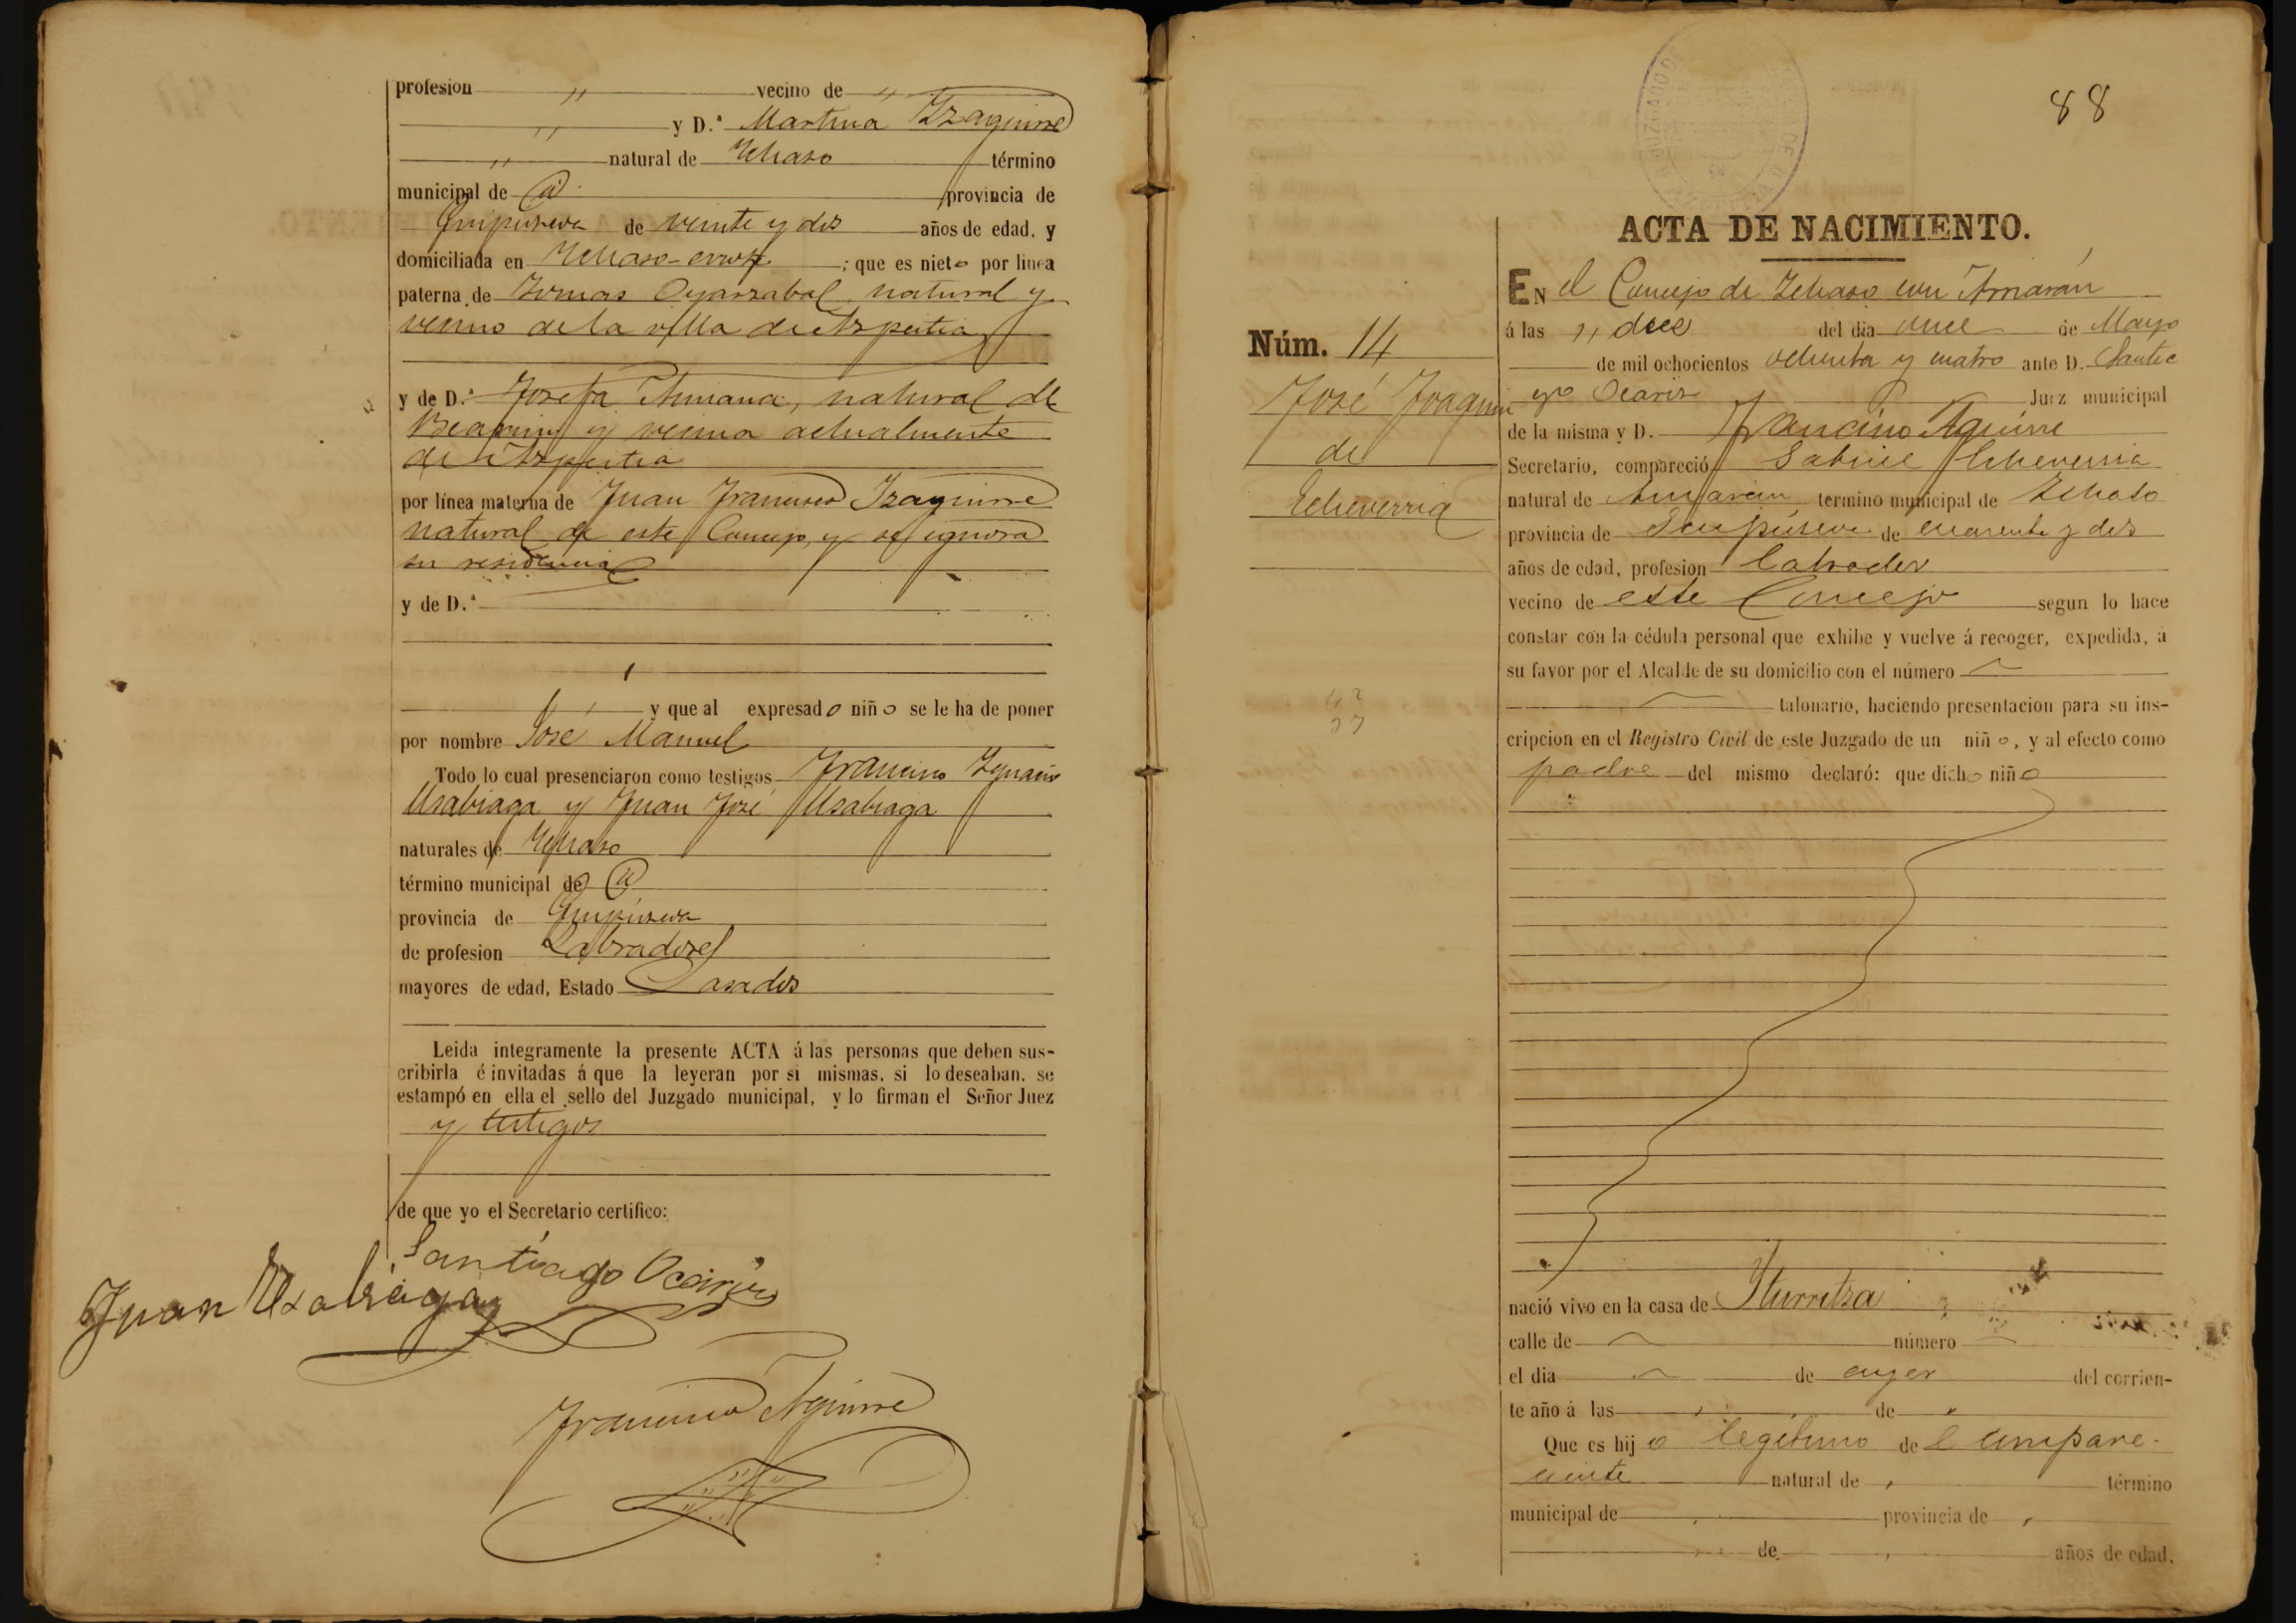 profesion " vecino de "
" y D.ª Martina Yzaguirre
" natural de Ychaso término
municipal de id. provincia de
Guipúzcoa de veinte y dos años de edad, y
domiciliada en Ychaso ; que es nieto por linea
paterna de Tomas Oyarzabal natural y
vecino de la villa de Azpeitia
y de D.ª Josefa natural de
Beasain y vecina actualmente
de Azpeitia
por línea materna de Juan Francisco Izaguirre
natural de este Concejo, y se ignora
su residencia
y de D.ª
y que al expresado niño se le ha de poner
por nombre José Manuel
Todo lo cual presenciaron como testigos Francisco Ygnacio
Usabiaga y Juan José Usabiaga
naturales de Ychaso
término municipal de id
provincia de Guipúzcoa
de profesion Labradores
mayores de edad, Estado Casados
Leida integramente la presente ACTA á las personas que deben sus-
cribirla é invitadas á que la leyeran por si mismas, si lo deseaban, se
estampó en ella el sello del Juzgado municipal, y lo firman el Señor Juez
y testigos
de que yo el Secretario certifico:
Santiago Ocariz
Juan Usabiaga
Francisco Aguirre
88
ACTA DE NACIMIENTO.
Núm. 14
José Joaquin
de
Echeverria
EN el Concejo de Ychaso con Arriarán
á las doce del dia once de Mayo
de mil ochocientos ochenta y cuatro ante D. Santia
go Ocariz Juez municipal
de la misma y D. Francisco Aguirre
Secretario, compareció Gabriel Echeverria
natural de Arriaran termino municipal de Ychaso
provincia de Guipúzcoa de cuarenta y dos
años de edad, profesion labrador
vecino de este Concejo segun lo hace
constar con la cédula personal que exhibe y vuelve á recoger, expedida, á
su favor por el Alcalde de su domicilio con el número
talonario, haciendo presentacion para su ins-
cripcion en el Registro Civil de este Juzgado de un niño, y al efecto como
padre del mismo declaró: que dicho niño
nació vivo en la casa de Yturritza
calle de número
el dia de ayer del corrien-
te año á las de
Que es hijo legitimo del compare-
ciente natural de término
municipal de provincia de
de años de edad.